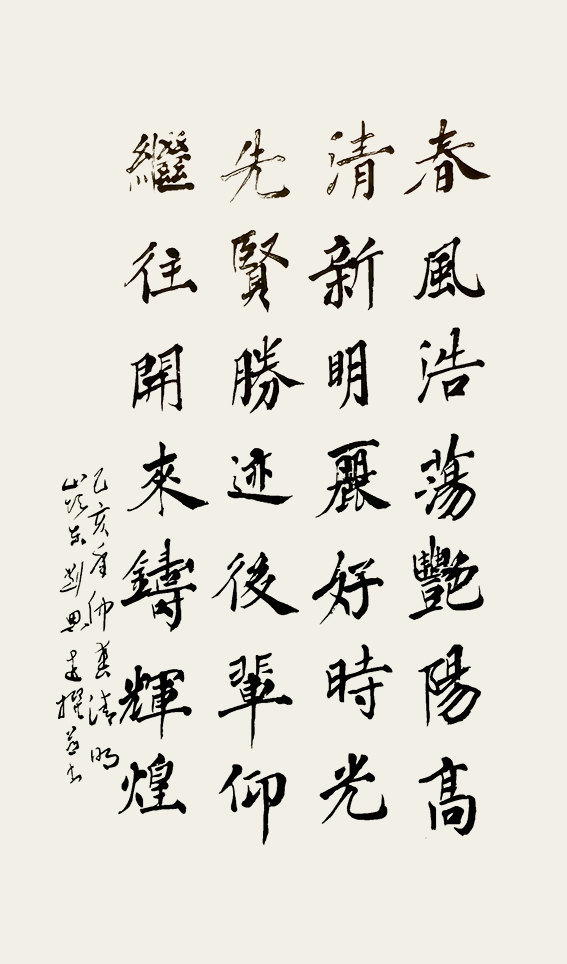 春風浩蕩艷陽高
清新明麗好時光
先賢勝迹後輩仰
繼往開來鑄輝煌
己亥年仲春清明
山東劉思撰并书